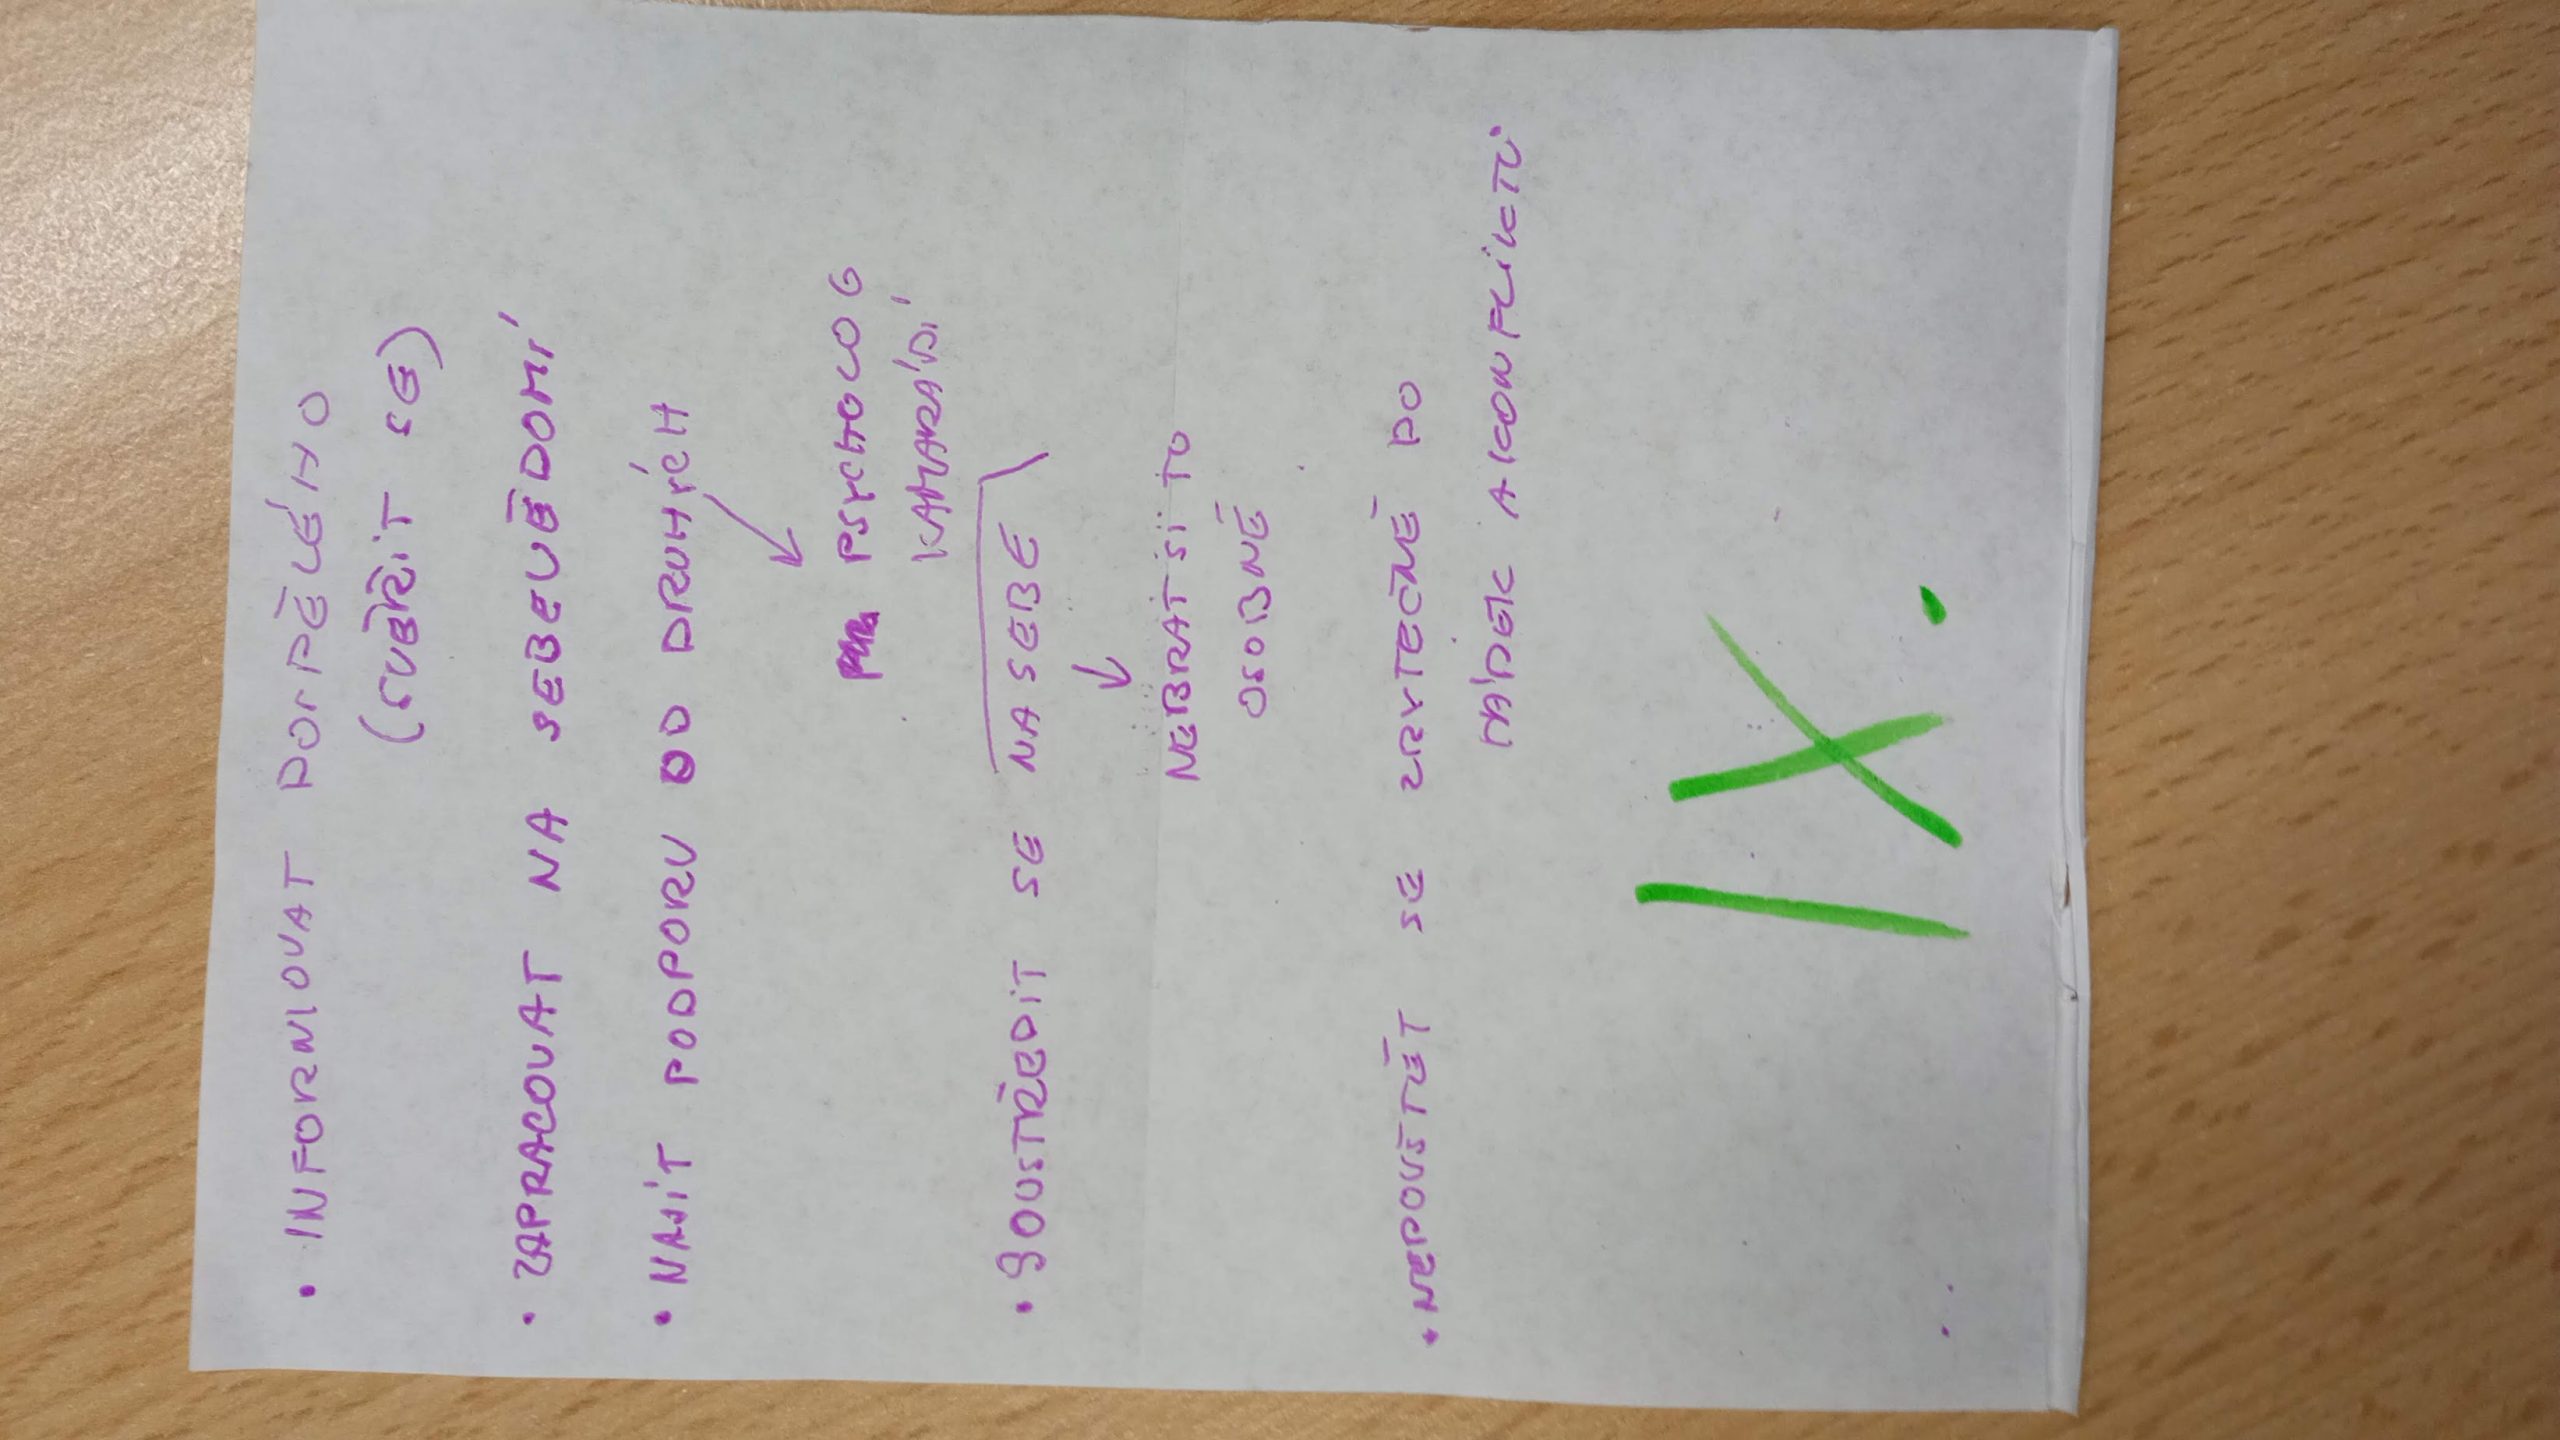 • INFORMOVAT DOSPĚLÉHO
(SVĚŘIT SE)
• ZAPRACOVAT NA SEBEVĚDOMÍ
• NAJÍT PODPORU OD DRUHÝCH
PSYCHOLOG
KAMARÁDI
• SOUSTŘEDIT SE NA SEBE
NEBRAT SI TO
OSOBNĚ
• NEPOUŠTĚT SE ZBYTEČNĚ DO
HÁDEK A KONFLIKTŮ.
IX.